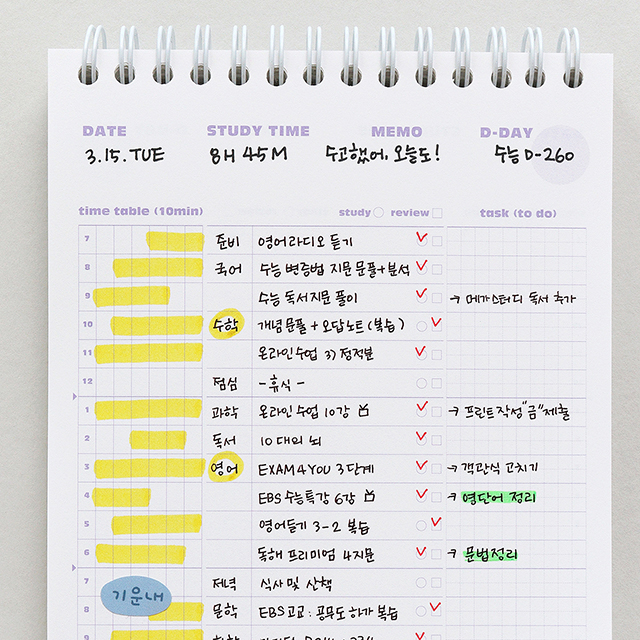 DATE STUDY TIME MEMO D-DAY
3.15. TUE 8H 45M 수고했어, 오늘도! 수능 D-260
time table (10min) study review task (to do)
7 준비 영어라디오 듣기
8 국어 수능 변증법 지문 문풀+분석
9 수능 독서지문 풀이 → 메가스터디 독서 추가
10 수학 개념문풀 + 오답노트 (복습)
11 온라인수업 3) 정적분
12 점심 - 휴식 -
1 과학 온라인수업 10강 → 프린트작성 "금"제출
2 독서 10대의 뇌
3 영어 EXAM4YOU 3단계 → 객관식 고치기
4 EBS 수능특강 6강 → 영단어 정리
5 영어듣기 3-2 복습
6 독해 프리미엄 4지문 → 문법정리
7 저녁 식사 및 산책
기운내
8 문학 EBS 고교: 공무도하가 복습
9